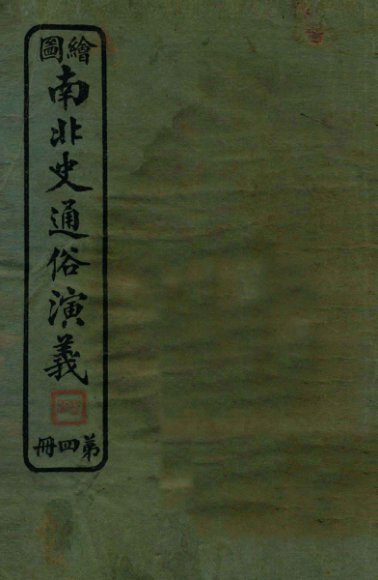 繪圖
南北史通俗演義
第四冊